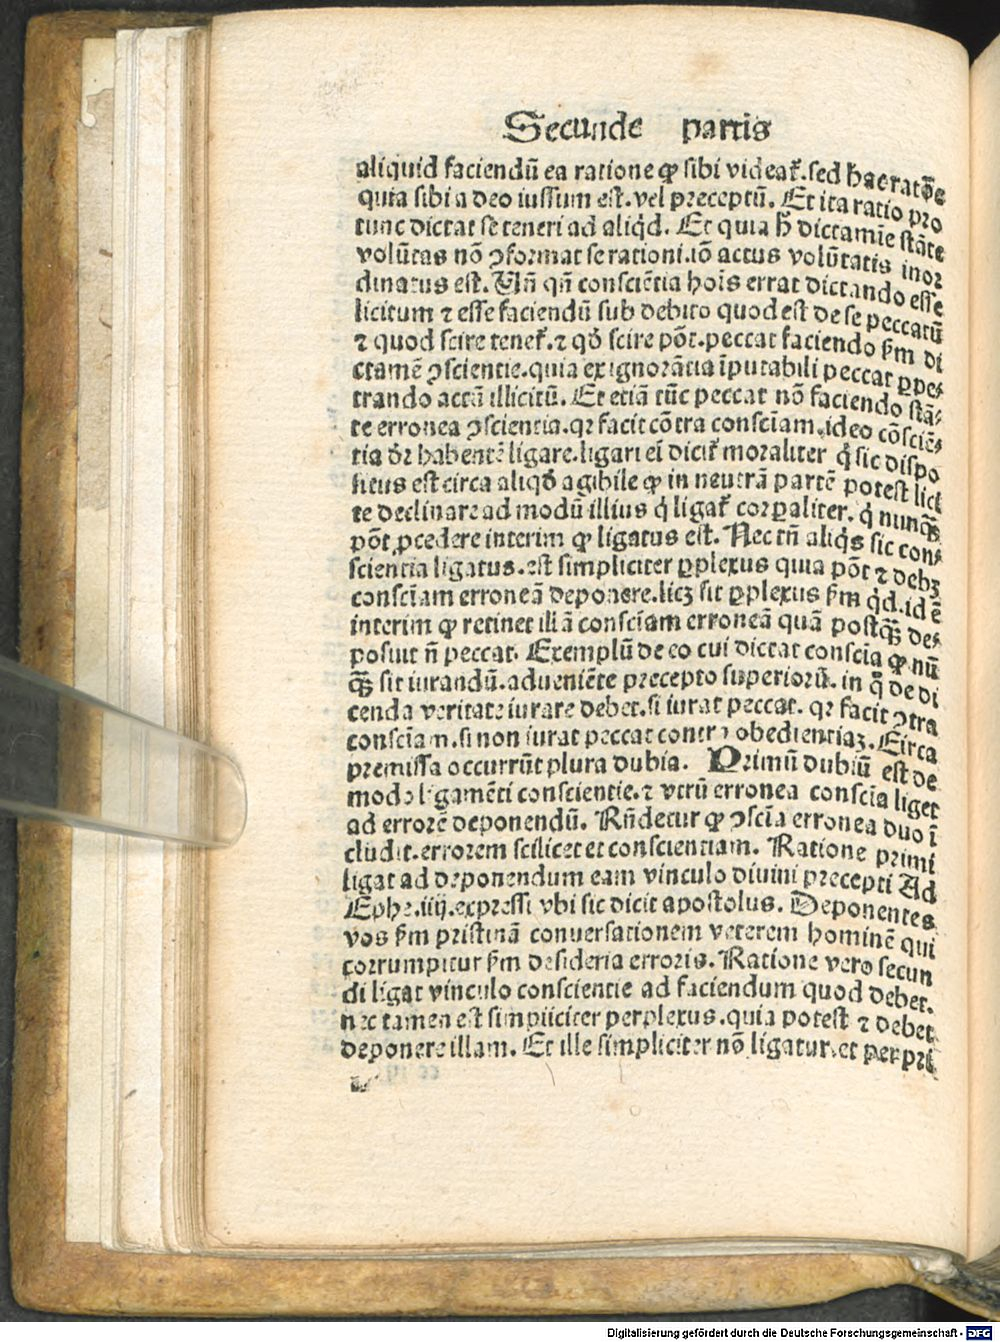 Secunde partis
aliquid faciendū ea ratione ꝙ sibi videat᷑. sed hac ratōe
quia sibi a deo iussum est. vel preceptū. Et ita ratio pro
tunc dictat se teneri ad aliqd̄. Et quia h̄ dictamīe stāte
volūtas nō ꝯformat se rationi. iō actus volūtatis inor
dinatus est. Vn̄ qn̄ consciētia hoīs errat dictando esse
licitum ⁊ esse faciendū sub debito quod est de se peccatū
⁊ quod scire tenet᷑. ⁊ qđ scire pōt. peccat faciendo ẜm di
ctamē ꝯscientie. quia ex ignorātia īputabili peccat ꝑpe⸗
trando actū illicitū. Et etiā tūc peccat nō faciendo stā⸗
te erronea ꝯscientia. qꝛ facit cōtra consciam. ideo cōsciē⸗
tia dr̄ habentē ligare. ligari em̄ dicit᷑ moraliter q̇ sic dispo
situs est circa aliqđ agibile ꝙ in neutrā partē potest lici
te declinare ad modū illius q̇ ligat᷑ corꝑaliter. q̇ nunq̄ꝫ
pōt ꝓcedere interim ꝙ ligatus est. Nec tn̄ aliq̇s sic con⸗
scientia ligatus. est simpliciter ꝑplexus quia pōt ⁊ debꝫ
consciam erroneā deponere. licꝫ sit ꝑplexus ẜm qd̄. id ē
interim ꝙ retinet illā consciam erroneā quā postq̄ꝫ de⸗
posuit n̄ peccat. Exemplū de eo cui dictat conscia ꝙ nū
q̄ꝫ sit iurandū. adueniēte precepto superiorū. in q̄ de di
cenda veritate iurare debet. si iurat peccat. qꝛ facit ꝯtra
consciam. si non iurat peccat contra obedientiaꝫ. Circa
premissa occurrūt plura dubia. Primū dubiū est de
modo ligamēti conscientie. ⁊ vtrū erronea conscia liget
ad errorē deponendū. Rn̄detur ꝙ ꝯscia erronea duo ī
cludit. errorem scilicet et conscientiam. Ratione primi
ligat ad deponendum eam vinculo diuini precepti Ad
Ephe. iiij. expressi vbi sic dicit apostolus. Deponentes
vos ẜm pristinā conuersationem veterem hominē qui
corrumpitur ẜm desideria erroris. Ratione vero secun
di ligat vinculo conscientie ad faciendum quod debet.
nec tamen est simpliciter perplexus. quia potest ⁊ debet
deponere illam. Et ille simpliciter nō ligatur. et per pri
Digitalisierung gefördert durch die Deutsche Forschungsgemeinschaft - DFG